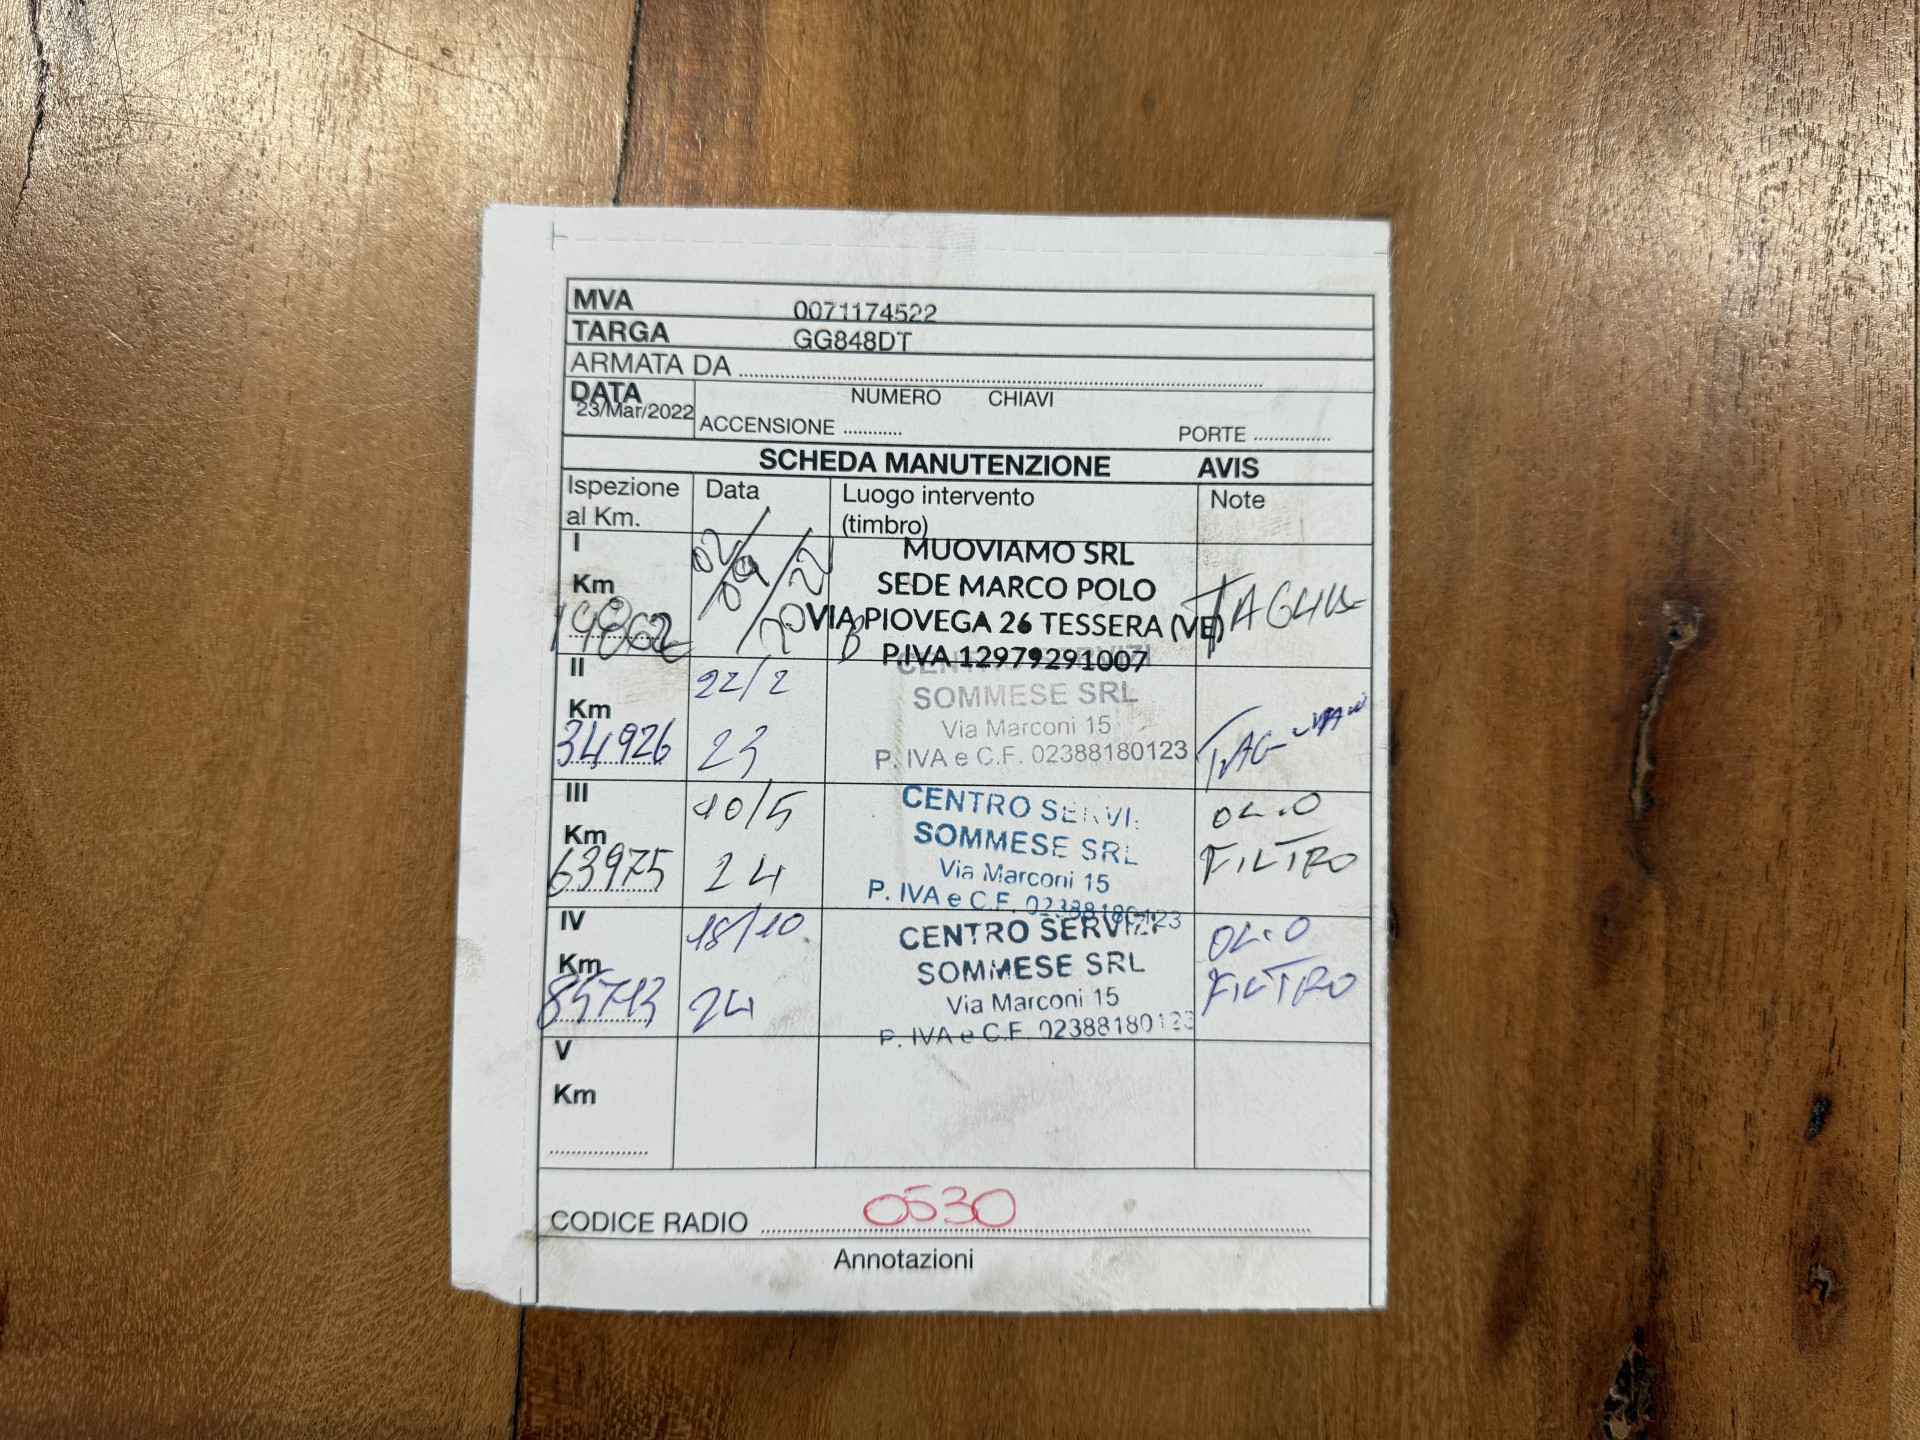 MVA 0071174522
TARGA GG848DT
ARMATA DA
DATA NUMERO CHIAVI
23/Mar/2022 ACCENSIONE PORTE
SCHEDA MANUTENZIONE AVIS
Ispezione al Km. Data Luogo intervento (timbro) Note
I
Km
02/09/2022
MUOVIAMO SRL
SEDE MARCO POLO
VIA PIOVEGA 26 TESSERA (VE)
P.IVA 12979291007
B
II
Km
34926
22/2
23
CENTRO SERVIZI
SOMMESE SRL
Via Marconi 15
P. IVA e C.F. 02388180123
III
Km
63975
10/5
24
CENTRO SERVI
SOMMESE SRL
Via Marconi 15
P. IVA e C.F. 02388180123
OLIO
FILTRO
IV
Km
85713
18/10
24
CENTRO SERVIZI
SOMMESE SRL
Via Marconi 15
P. IVA e C.F. 02388180123
OLIO
FILTRO
V
Km
CODICE RADIO 0530
Annotazioni